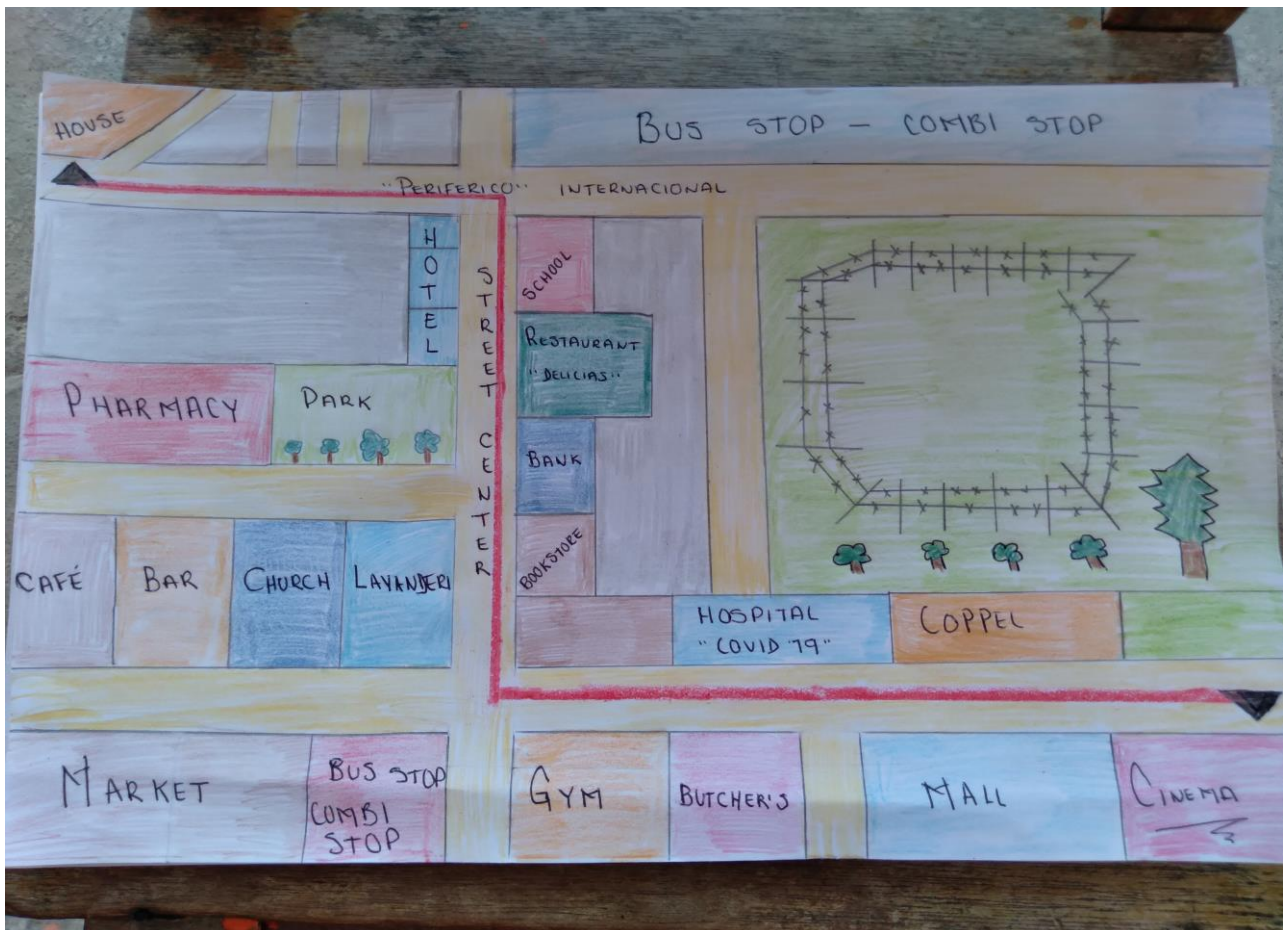 HOUSE
BUS STOP - COMBI STOP
"PERIFERICO" INTERNACIONAL
HOTEL
STREET CENTER
SCHOOL
RESTAURANT
"DELICIAS"
PHARMACY
PARK
BANK
BOOKSTORE
CAFÉ
BAR
CHURCH
LAVANDERI
HOSPITAL
"COVID 19"
COPPEL
MARKET
BUS STOP
COMBI
STOP
GYM
BUTCHER'S
MALL
CINEMA